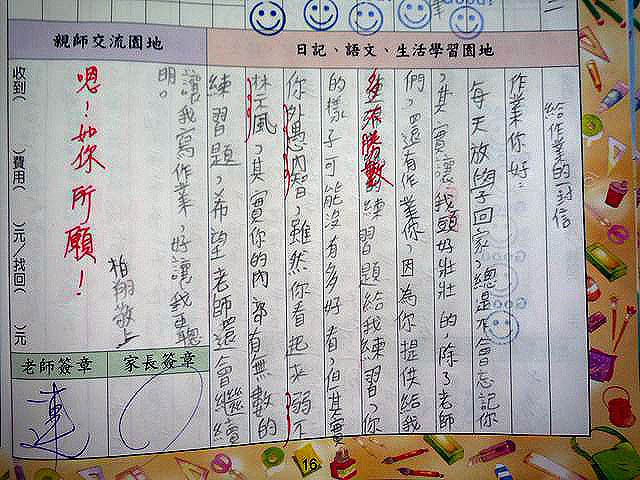 日記、語文、生活學習園地
親師交流園地
給作業的一封信
作業你好：
每天放學回家，總是不會忘記你
，其實讓我頭好壯壯的，除了老師
們，還有作業你，因為你提供給我
不勝數的練習題給我練習，你
的樣子可能沒有多好看，但其實
你外愚內智，雖然你看起來弱不
禁風，其實你的內部有無數的
練習題，希望老師還會繼續
讓我寫作業，好讓我更聰
明。
柏翔敬上
嗯！如你所願！
收到(　　)費用(　　)元/找回(　　)元
家長簽章
老師簽章
連
16